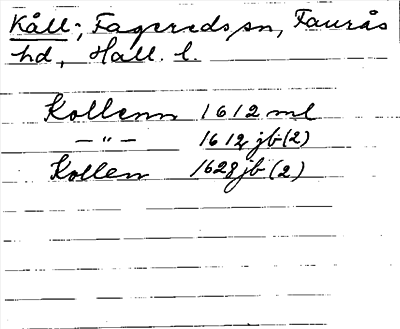 Kåll-; Fagereds sn, Faurås
hd, Hall. l.
Kollenn 1612 ml
— " — 1612 jb (2)
Kollen 1628 jb (2)